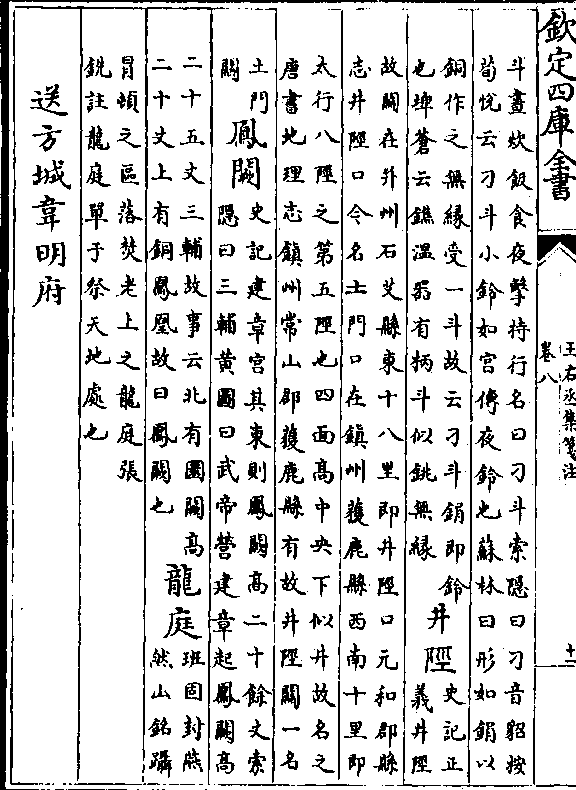 欽定四庫全書
王右丞集箋注
卷八
十一
斗晝炊飯食夜擊持行名曰刁斗索隠曰刁音貂按
荀悅云刁斗小鈴如宫傳夜鈴也蘇林曰形如鋗以
銅作之無縁受一斗故云刁斗鋗即鈴
也埤蒼云鐎溫器有柄斗似銚無縁
井陘
史記正
義井陘
故關在并州石艾縣東十八里即井陘口元和郡縣
志井陘口今名土門口在鎮州獲鹿縣西南十里即
太行八陘之第五陘也四面高中央下似井故名之
唐書地理志鎮州常山郡獲鹿縣有故井陘關一名
土門
關
鳳闕
史記建章宫其東則鳳闕高二十餘丈索
隠曰三輔黄圖曰武帝營建章起鳳闕高
二十五丈三輔故事云北有圜闕高
二十丈上有銅鳳凰故曰鳳闕也
龍庭
班固封燕
然山銘躡
冒頓之區落焚老上之龍庭張
銑註龍庭單于祭天地處也
送方城韋明府